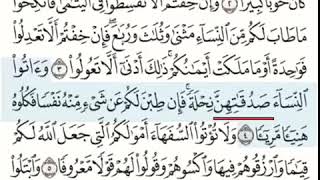 كَانَ حُوبًا كَبِيرًا ٢ وَإِنْ خِفْتُمْ أَلَّا تُقْسِطُوا۟ فِى ٱلْيَتَـٰمَىٰ فَٱنكِحُوا۟
مَا طَابَ لَكُم مِّنَ ٱلنِّسَآءِ مَثْنَىٰ وَثُلَـٰثَ وَرُبَـٰعَ ۖ فَإِنْ خِفْتُمْ أَلَّا تَعْدِلُوا۟
فَوَٰحِدَةً أَوْ مَا مَلَكَتْ أَيْمَـٰنُكُمْ ۚ ذَٰلِكَ أَدْنَىٰٓ أَلَّا تَعُولُوا۟ ٣ وَءَاتُوا۟
ٱلنِّسَآءَ صَدُقَـٰتِهِنَّ نِحْلَةً ۚ فَإِن طِبْنَ لَكُمْ عَن شَىْءٍ مِّنْهُ نَفْسًا فَكُلُوهُ
هَنِيٓـًٔا مَّرِيٓـًٔا ٤ وَلَا تُؤْتُوا۟ ٱلسُّفَهَآءَ أَمْوَٰلَكُمُ ٱلَّتِى جَعَلَ ٱللَّهُ لَكُمْ
قِيَـٰمًا وَٱرْزُقُوهُمْ فِيهَا وَٱكْسُوهُمْ وَقُولُوا۟ لَهُمْ قَوْلًا مَّعْرُوفًا ٥ وَٱبْتَلُوا۟